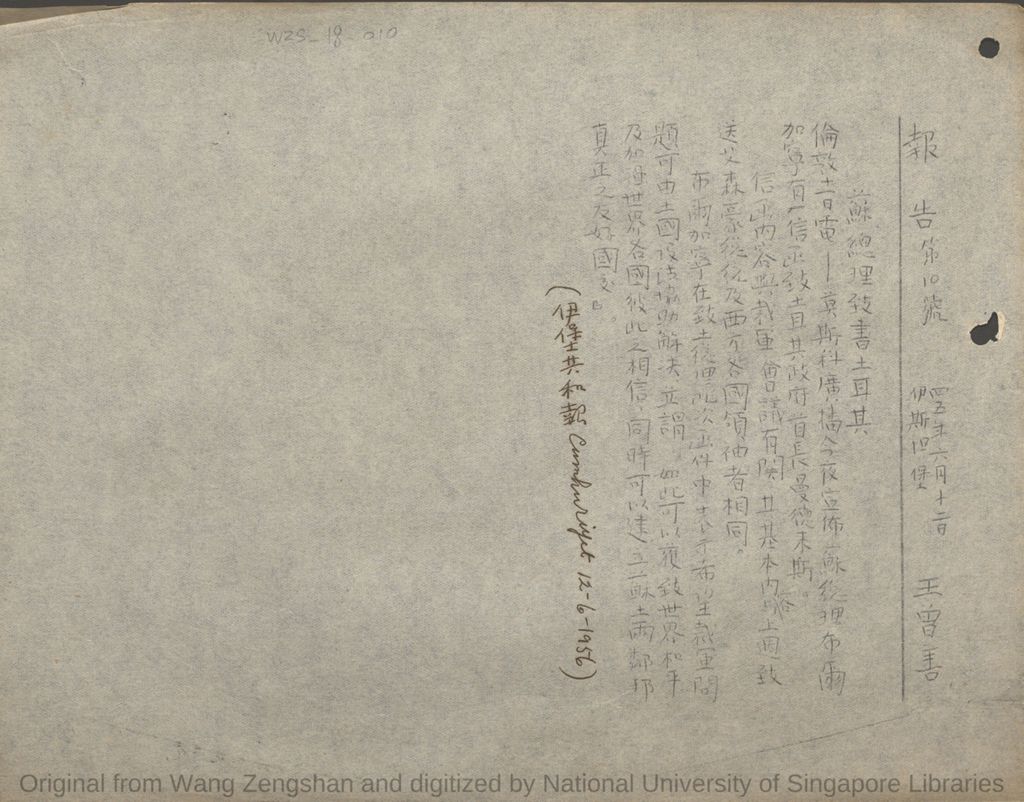 WZS-18-010
報告第10號
四五年六月十二日
伊斯坦堡
王曾善
蘇總理致書土耳其
倫敦十一日電——莫斯科廣播今夜宣佈蘇總理布爾
加寧有一信函致土耳其政府首長曼德來斯。
信函內容與裁軍會議有関其基本內容上與致
送艾森豪總統及西方各國領袖者相同。
布爾加寧在致土總理此次函件中表示希望裁軍問
題可由土國設法協助解決並謂如此可以獲致世界和平
及加強世界各國彼此之相信同時可以建立蘇土兩鄰邦
真正之友好國交。
(伊堡共和報 Cumhuriyet 12-6-1956)
Original from Wang Zengshan and digitized by National University of Singapore Libraries